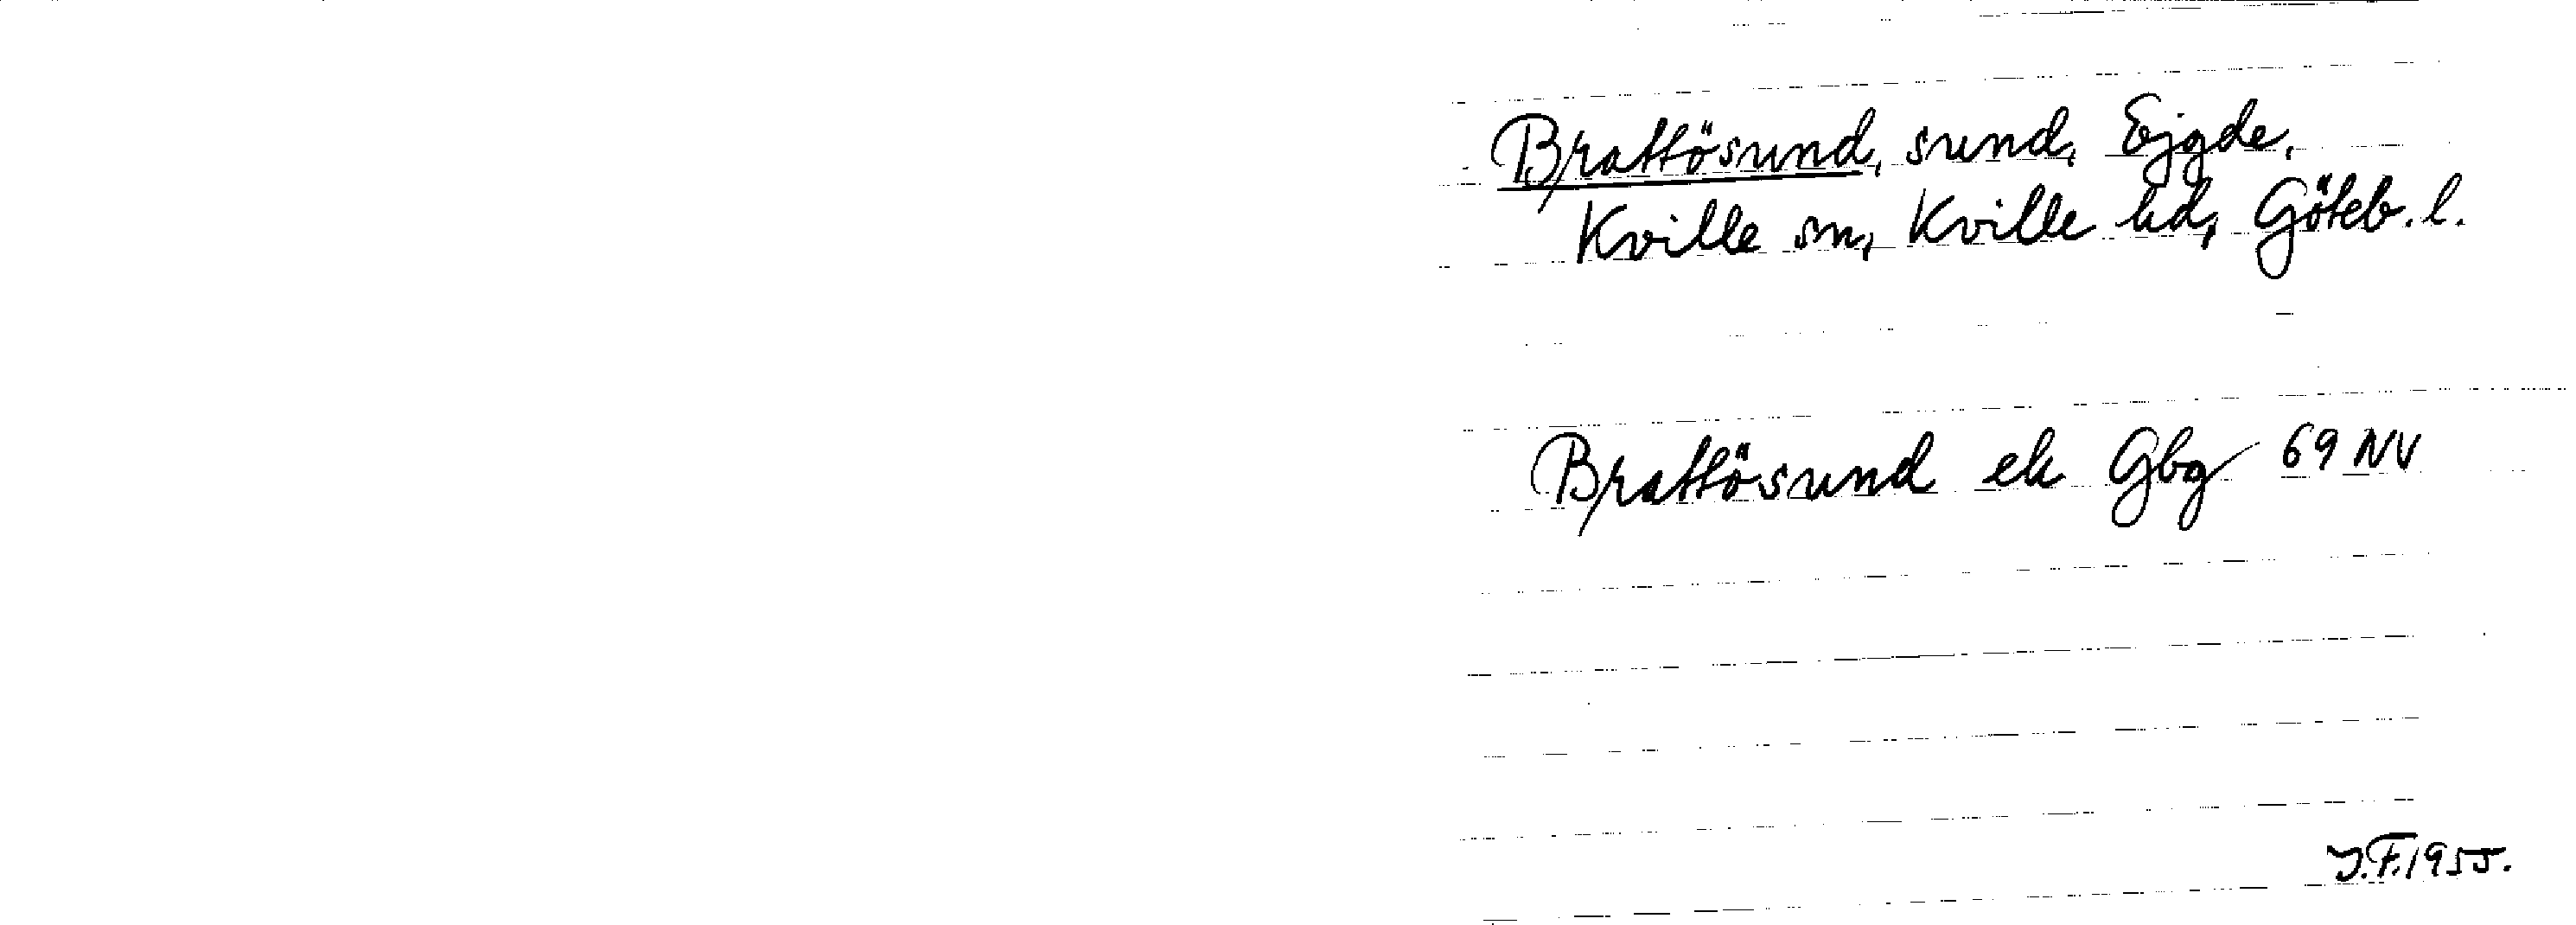 Brattösund, sund, Ejgde,
Kville sn, Kville hd, Göteb. l.
Brattösund ek Gbg 69 NV
J.F.1955.